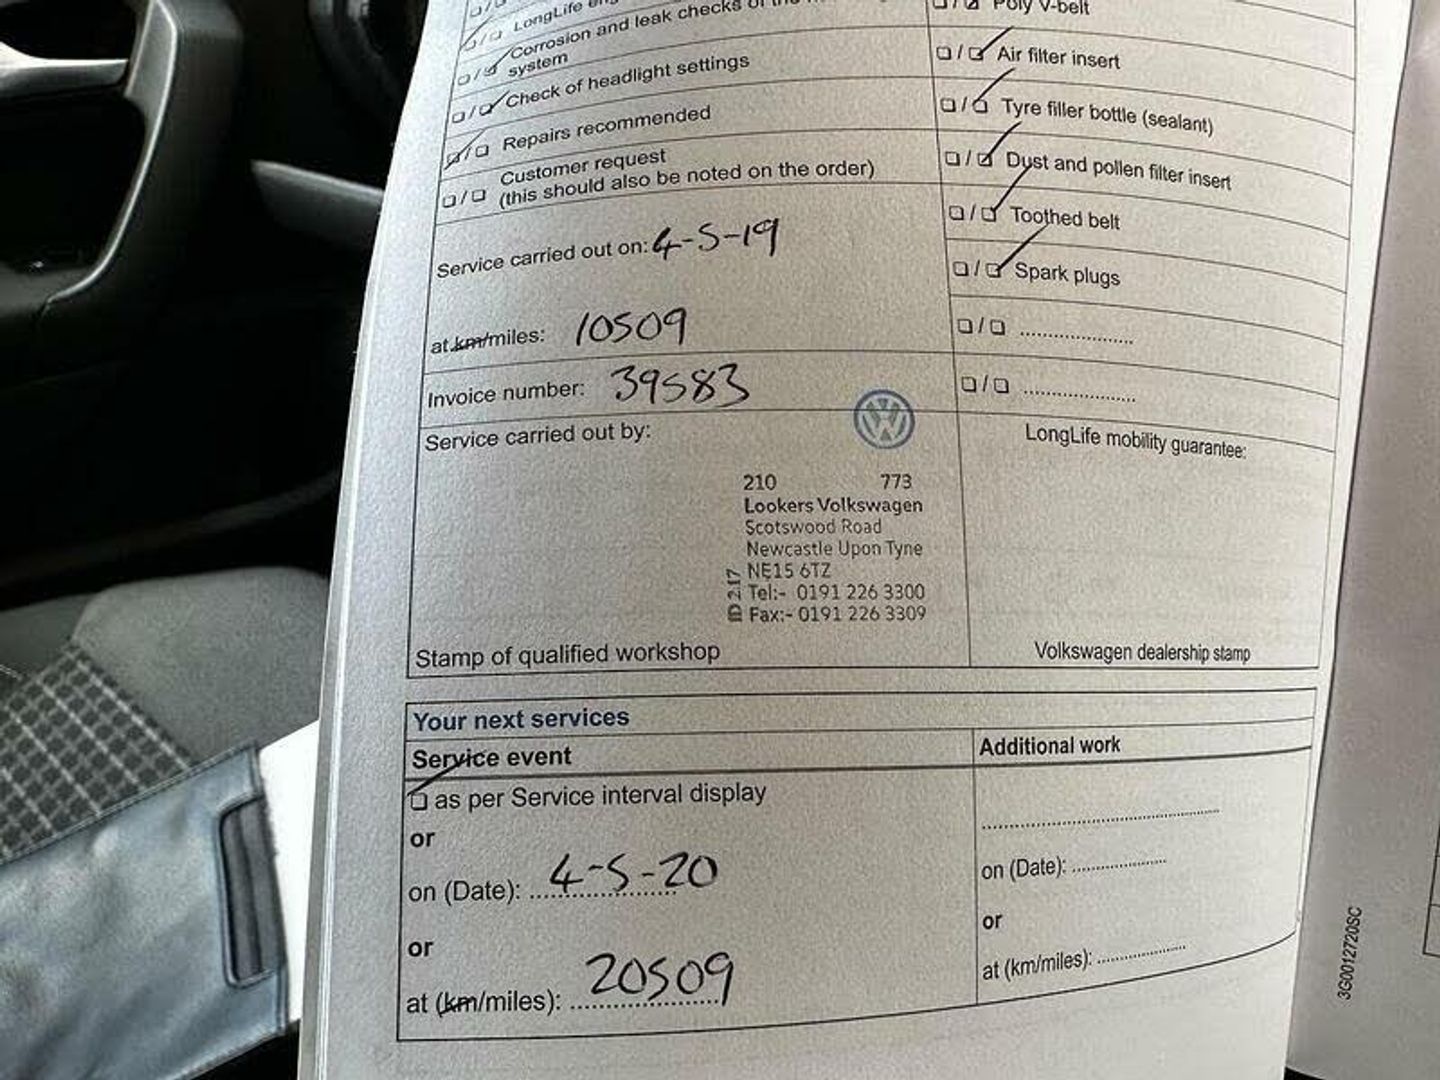 LongLife
Corrosion and leak checks of the
system
Check of headlight settings
Repairs recommended
Customer request
(this should also be noted on the order)
Service carried out on: 4-5-19
at km/miles: 10509
Invoice number: 39583
Service carried out by:
210 773
Lookers Volkswagen
Scotswood Road
Newcastle Upon Tyne
NE15 6TZ
Tel:- 0191 226 3300
Fax:- 0191 226 3309
ID 2.17
Stamp of qualified workshop
Poly V-belt
Air filter insert
Tyre filler bottle (sealant)
Dust and pollen filter insert
Toothed belt
Spark plugs
LongLife mobility guarantee:
Volkswagen dealership stamp
Your next services
Service event
as per Service interval display
or
on (Date): 4-5-20
or
at (km/miles): 20509
Additional work
on (Date):
or
at (km/miles):
3G0012720SC